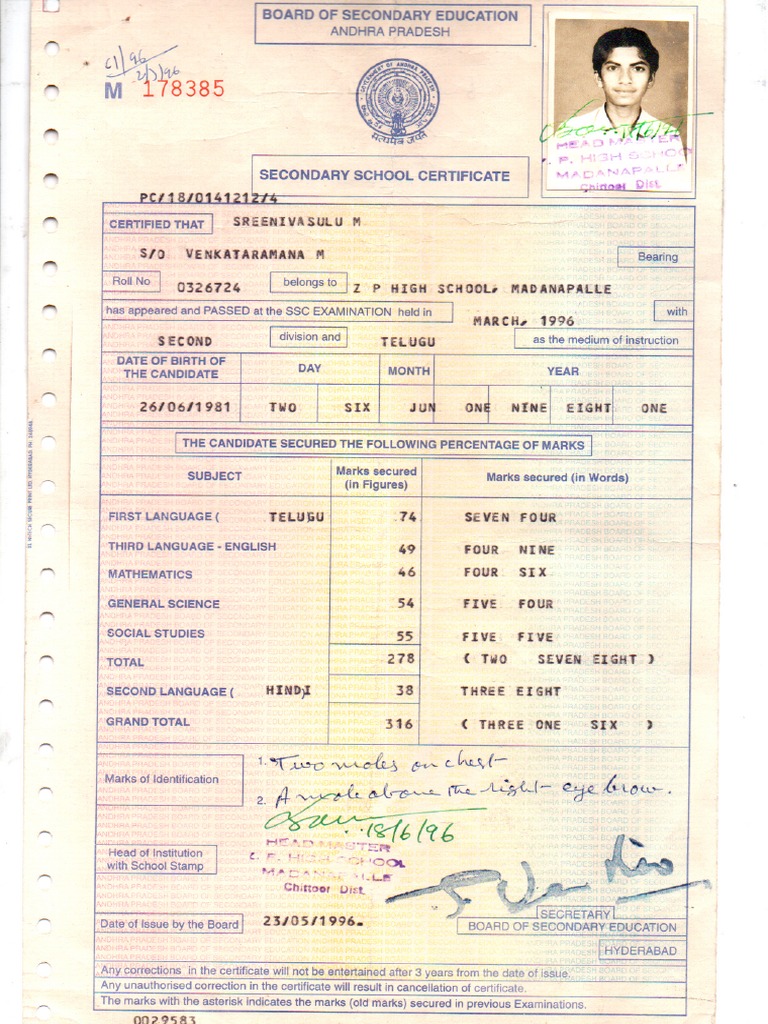 BOARD OF SECONDARY EDUCATION
ANDHRA PRADESH
c1/96
2/3/96
M 178385
GOVERNMENT OF ANDHRA PRADESH
सत्यमेव जयते
18/6/96
HEAD MASTER
P. HIGH SCHOOL
MADANAPALLE
Chittoor Dist.
SECONDARY SCHOOL CERTIFICATE
PC/18/0141212/4
CERTIFIED THAT SREENIVASULU M
S/O VENKATARAMANA M Bearing
Roll No 0326724 belongs to Z P HIGH SCHOOL, MADANAPALLE
has appeared and PASSED at the SSC EXAMINATION held in MARCH, 1996 with
SECOND division and TELUGU as the medium of instruction
DATE OF BIRTH OF THE CANDIDATE DAY MONTH YEAR
26/06/1981 TWO SIX JUN ONE NINE EIGHT ONE
THE CANDIDATE SECURED THE FOLLOWING PERCENTAGE OF MARKS
SUBJECT Marks secured (in Figures) Marks secured (in Words)
FIRST LANGUAGE ( TELUGU 74 SEVEN FOUR
THIRD LANGUAGE - ENGLISH 49 FOUR NINE
MATHEMATICS 46 FOUR SIX
GENERAL SCIENCE 54 FIVE FOUR
SOCIAL STUDIES 55 FIVE FIVE
TOTAL 278 ( TWO SEVEN EIGHT )
SECOND LANGUAGE ( HINDI) 38 THREE EIGHT
GRAND TOTAL 316 ( THREE ONE SIX )
Marks of Identification
1. Two moles on chest
2. A mole above the right eye brow.
18/6/96
Head of Institution with School Stamp
HEAD MASTER
P. HIGH SCHOOL
MADANAPALLE
Chittoor Dist.
SECRETARY
Date of Issue by the Board 23/05/1996. BOARD OF SECONDARY EDUCATION
HYDERABAD
Any corrections in the certificate will not be entertained after 3 years from the date of issue.
Any unauthorised correction in the certificate will result in cancellation of certificate.
The marks with the asterisk indicates the marks (old marks) secured in previous Examinations.
0029583